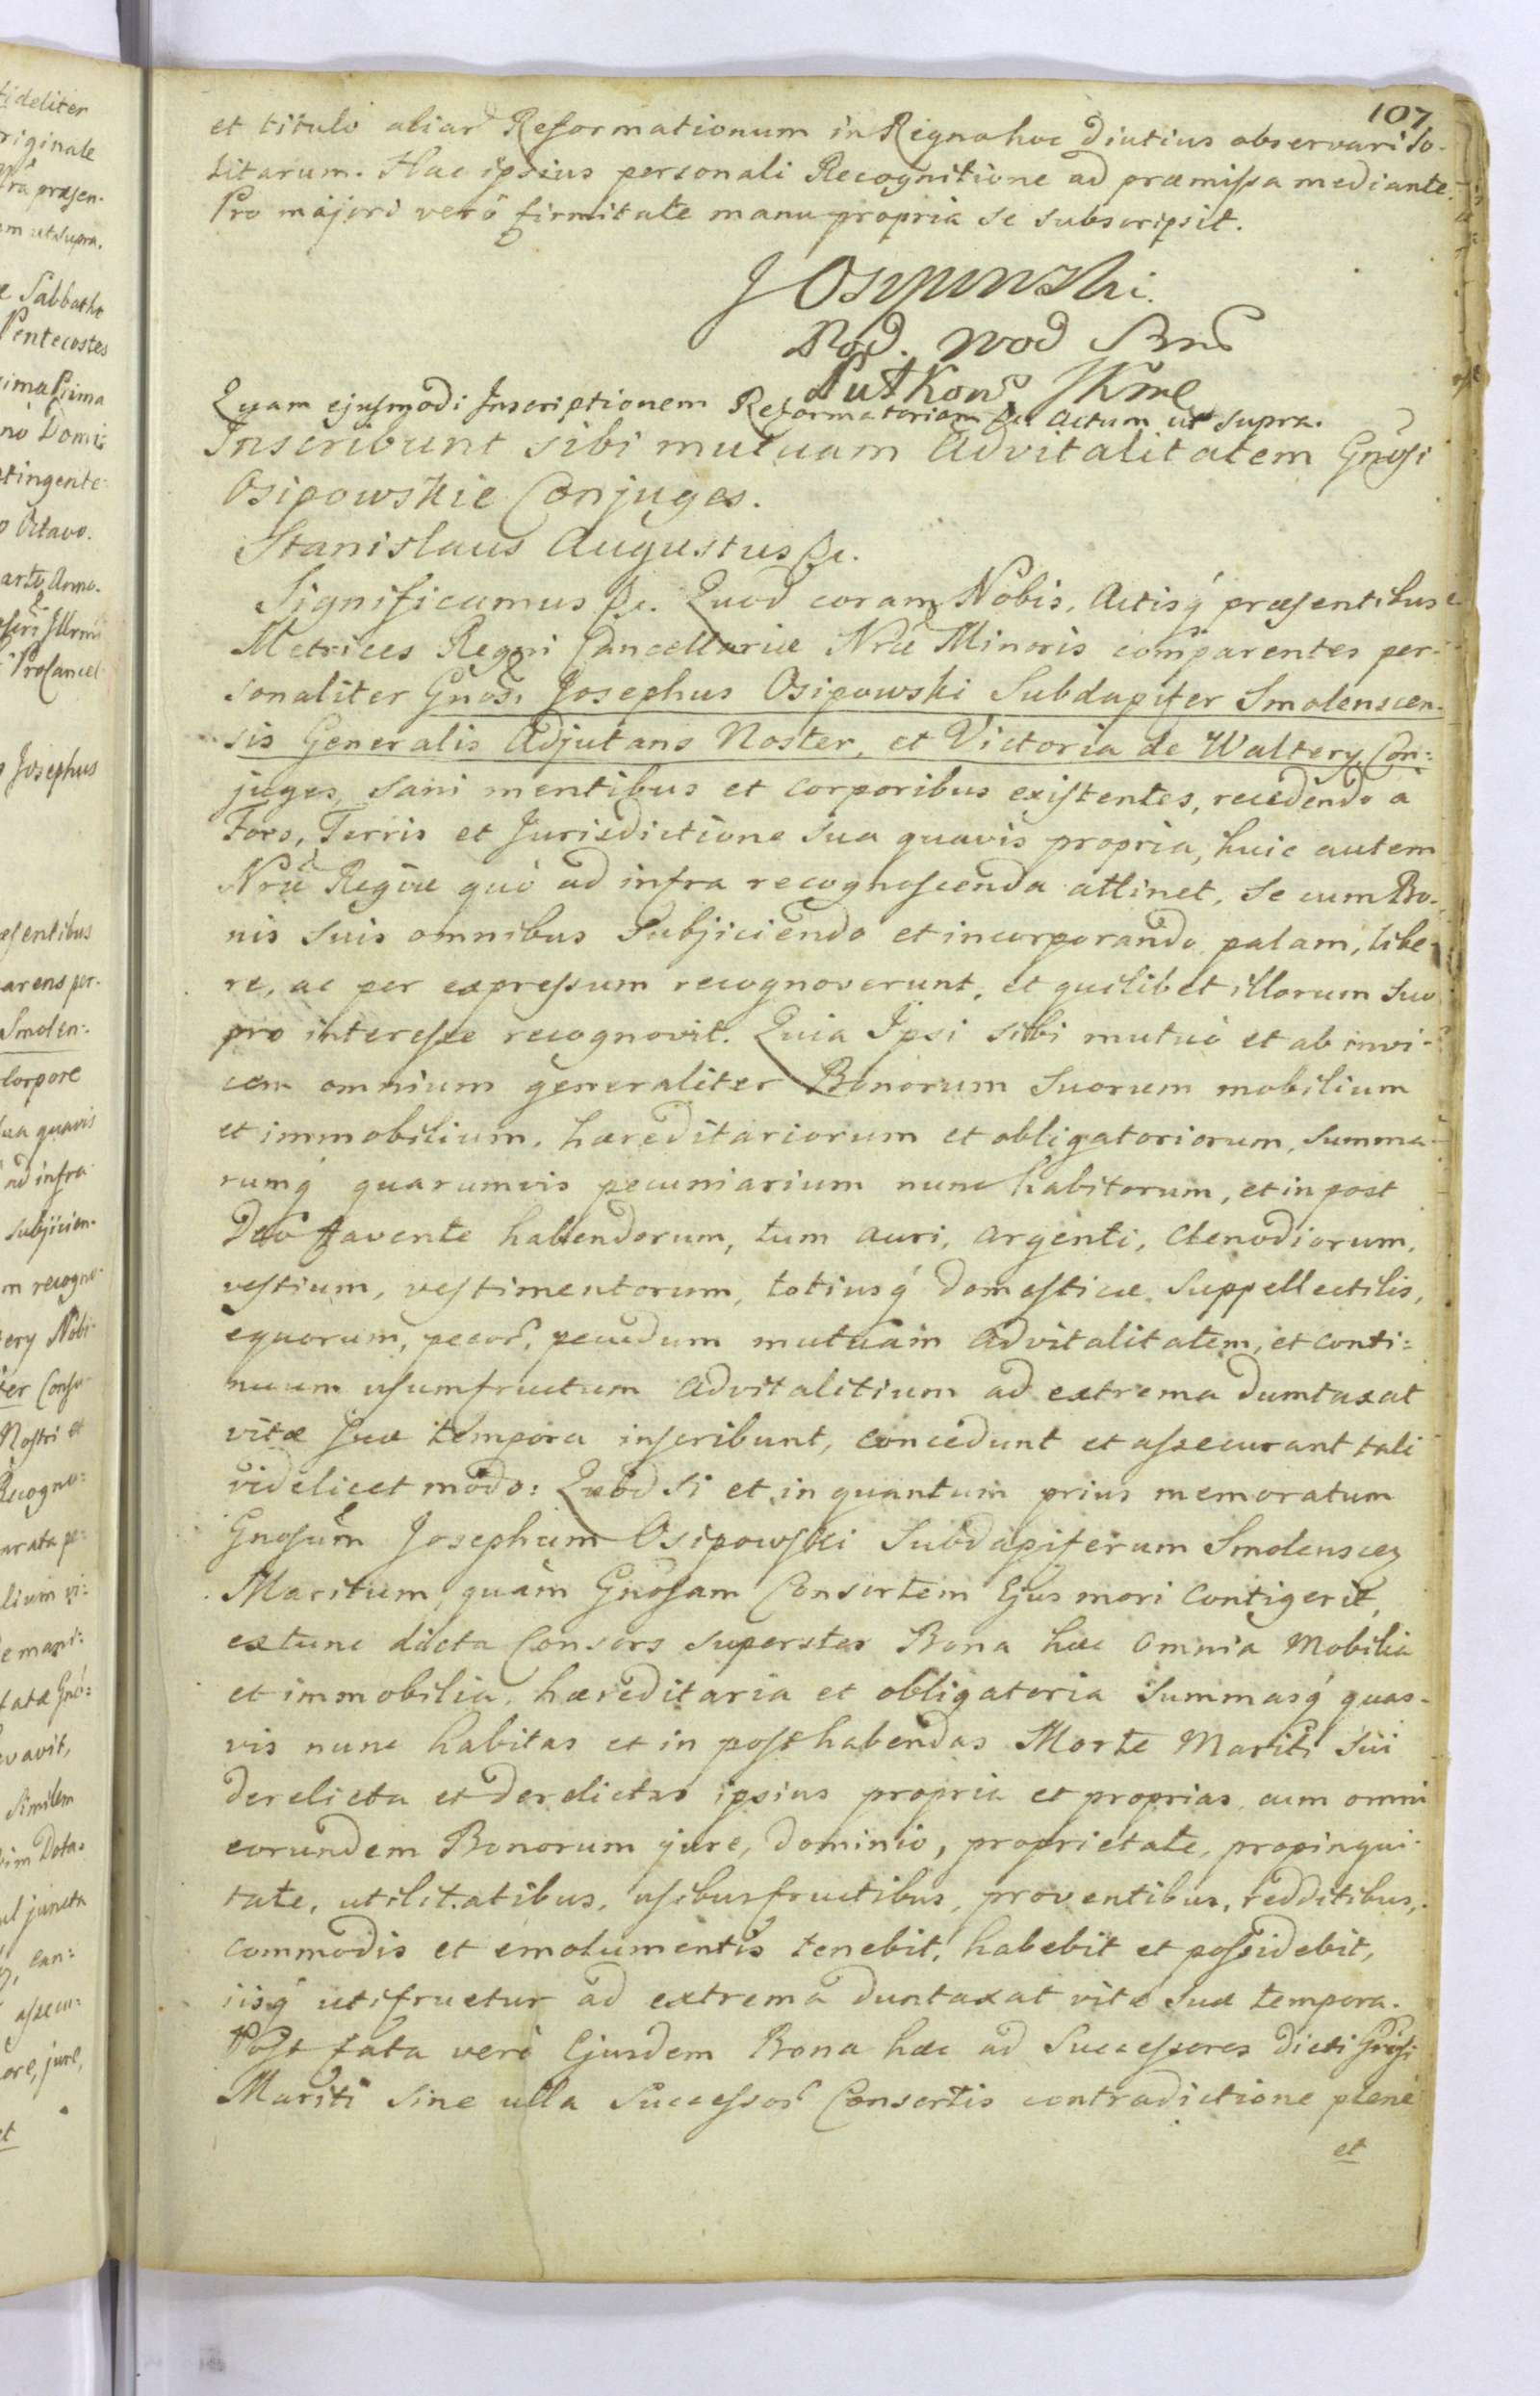 107
et titulo aliar Reformationum in Regno hoc diutius observari so-
litarum. Hac ipsius personali Recognitione ad præmissa mediante.
Pro majori verò firmitate manu propria se subscripsit.
J Osipowski
Pod. wod
Putkow
Quam ejusmodi Inscriptionem Reformatoriam &c Actum ut supra.
Inscribunt sibi mutuam Advitalitatem Gnosi
Osipowskie Conjuges.
Stanislaus Augustus &c.
Significamus &c. Quod coram Nobis, Actisq́ præsentibus
Metrices Regni Cancellariæ Nræ Minoris comparentes per-
sonaliter Gnosi Josephus Osipowski Subdapifer Smolenscen-
sis Generalis Adjutans Noster, et Victoria de Waltery Con:
juges, sani mentibus et corporibus existentes, recedendo a
Foro, Terris et Jurisdictione sua quavis propria, huic autem
Nræ Regiæ quò ad infra recognoscenda attinet, se cum Bo-
nis suis omnibus Subjiciendo et incorporando palam, libe-
re, ac per expressum recognoverunt, et quilibet illorum suo
pro interesse recognovit. Quia Ipsi sibi mutuò et ab invi-
cem omnium generaliter Bonorum suorum mobilium
et immobilium, hæreditariorum et obligatoriorum, summa-
rumq́ quarumvis pecuniarium nunc habitorum, et in post
Deo favente habendorum, tum auri, argenti, clenodiorum,
vestium, vestimentorum, totiusq́ domesticæ suppellectilis,
equorum, pecor, pecudum mutuam advitalitatem, et conti:
nuum usumfructum advitalitium ad extrema dumtaxat
vitæ suæ tempora inscribunt, concedunt et assecurant tali
videlicet modo: Quod si et in quantum prius memoratum
Gnosum Josephum Osipowski Subdapiferum Smolenscen
Maritum, quàm Gnosam Consortem Ejus mori contigerit,
extunc dicta Consors superstes Bona hæc omnia Mobilia
et immobilia, hæreditaria et obligatoria summasq́ quas-
vis nunc habitas et in post habendas Morte Mariti sui
derelicta et derelictas ipsius propria et proprias cum omni
eorundem Bonorum jure, dominio, proprietate, propinqui-
tate, utilitatibus, usibusfructibus, proventibus, redditibus,
commodis et emolumentis tenebit, habebit et possidebit,
iisq́ utifruetur ad extrema duntaxat vitæ suæ tempora.
Post fata verò Ejusdem Bona hæc ad Successores dicti Gnosi
Mariti sine ulla Successor Consortis contradictione plenè
et